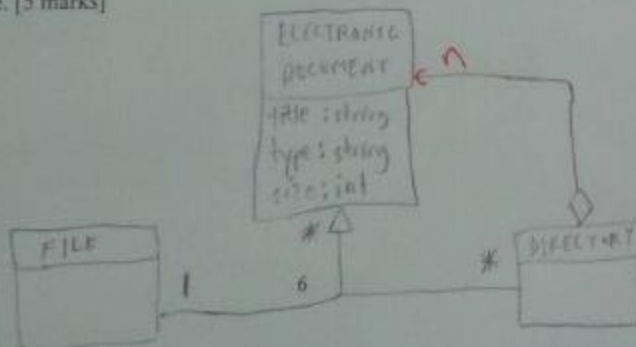 e. [5 marks]
ELECTRONIC
DOCUMENT
n
title : string
type : string
size : int
*
FILE
DIRECTORY
1
6
*